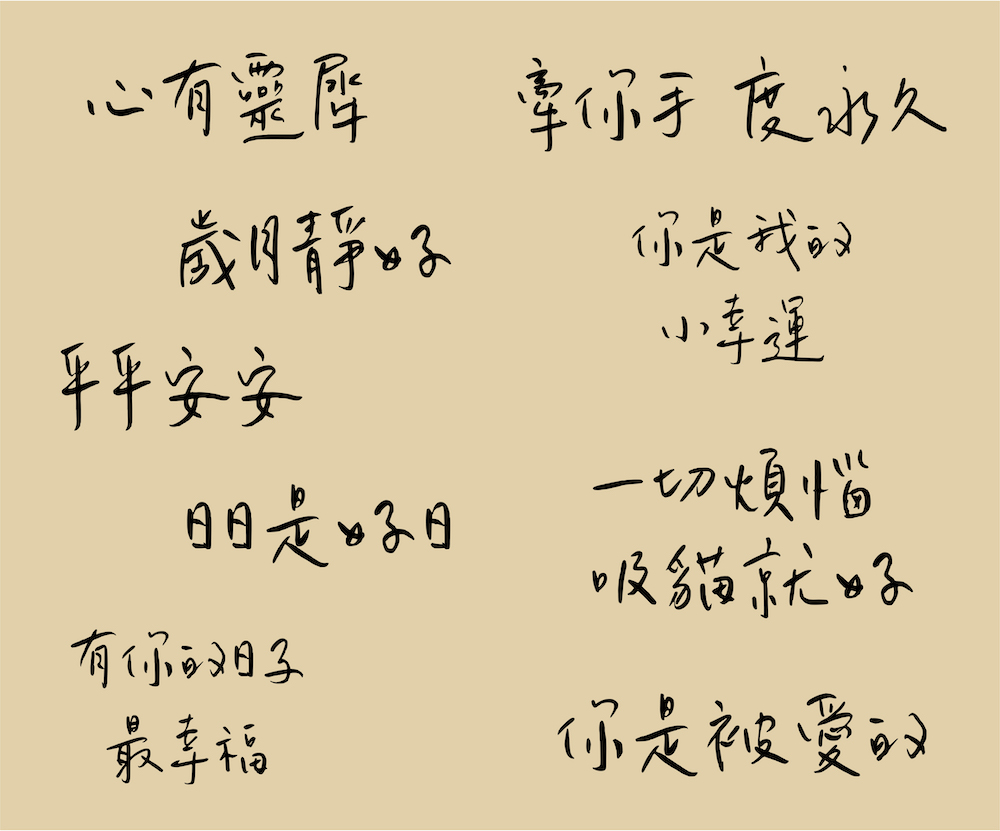 心有靈犀
歲月靜好
平平安安
日日是好日
有你的日子
最幸福
牽你手 度永久
你是我的
小幸運
一切煩惱
吸貓就好
你是被愛的